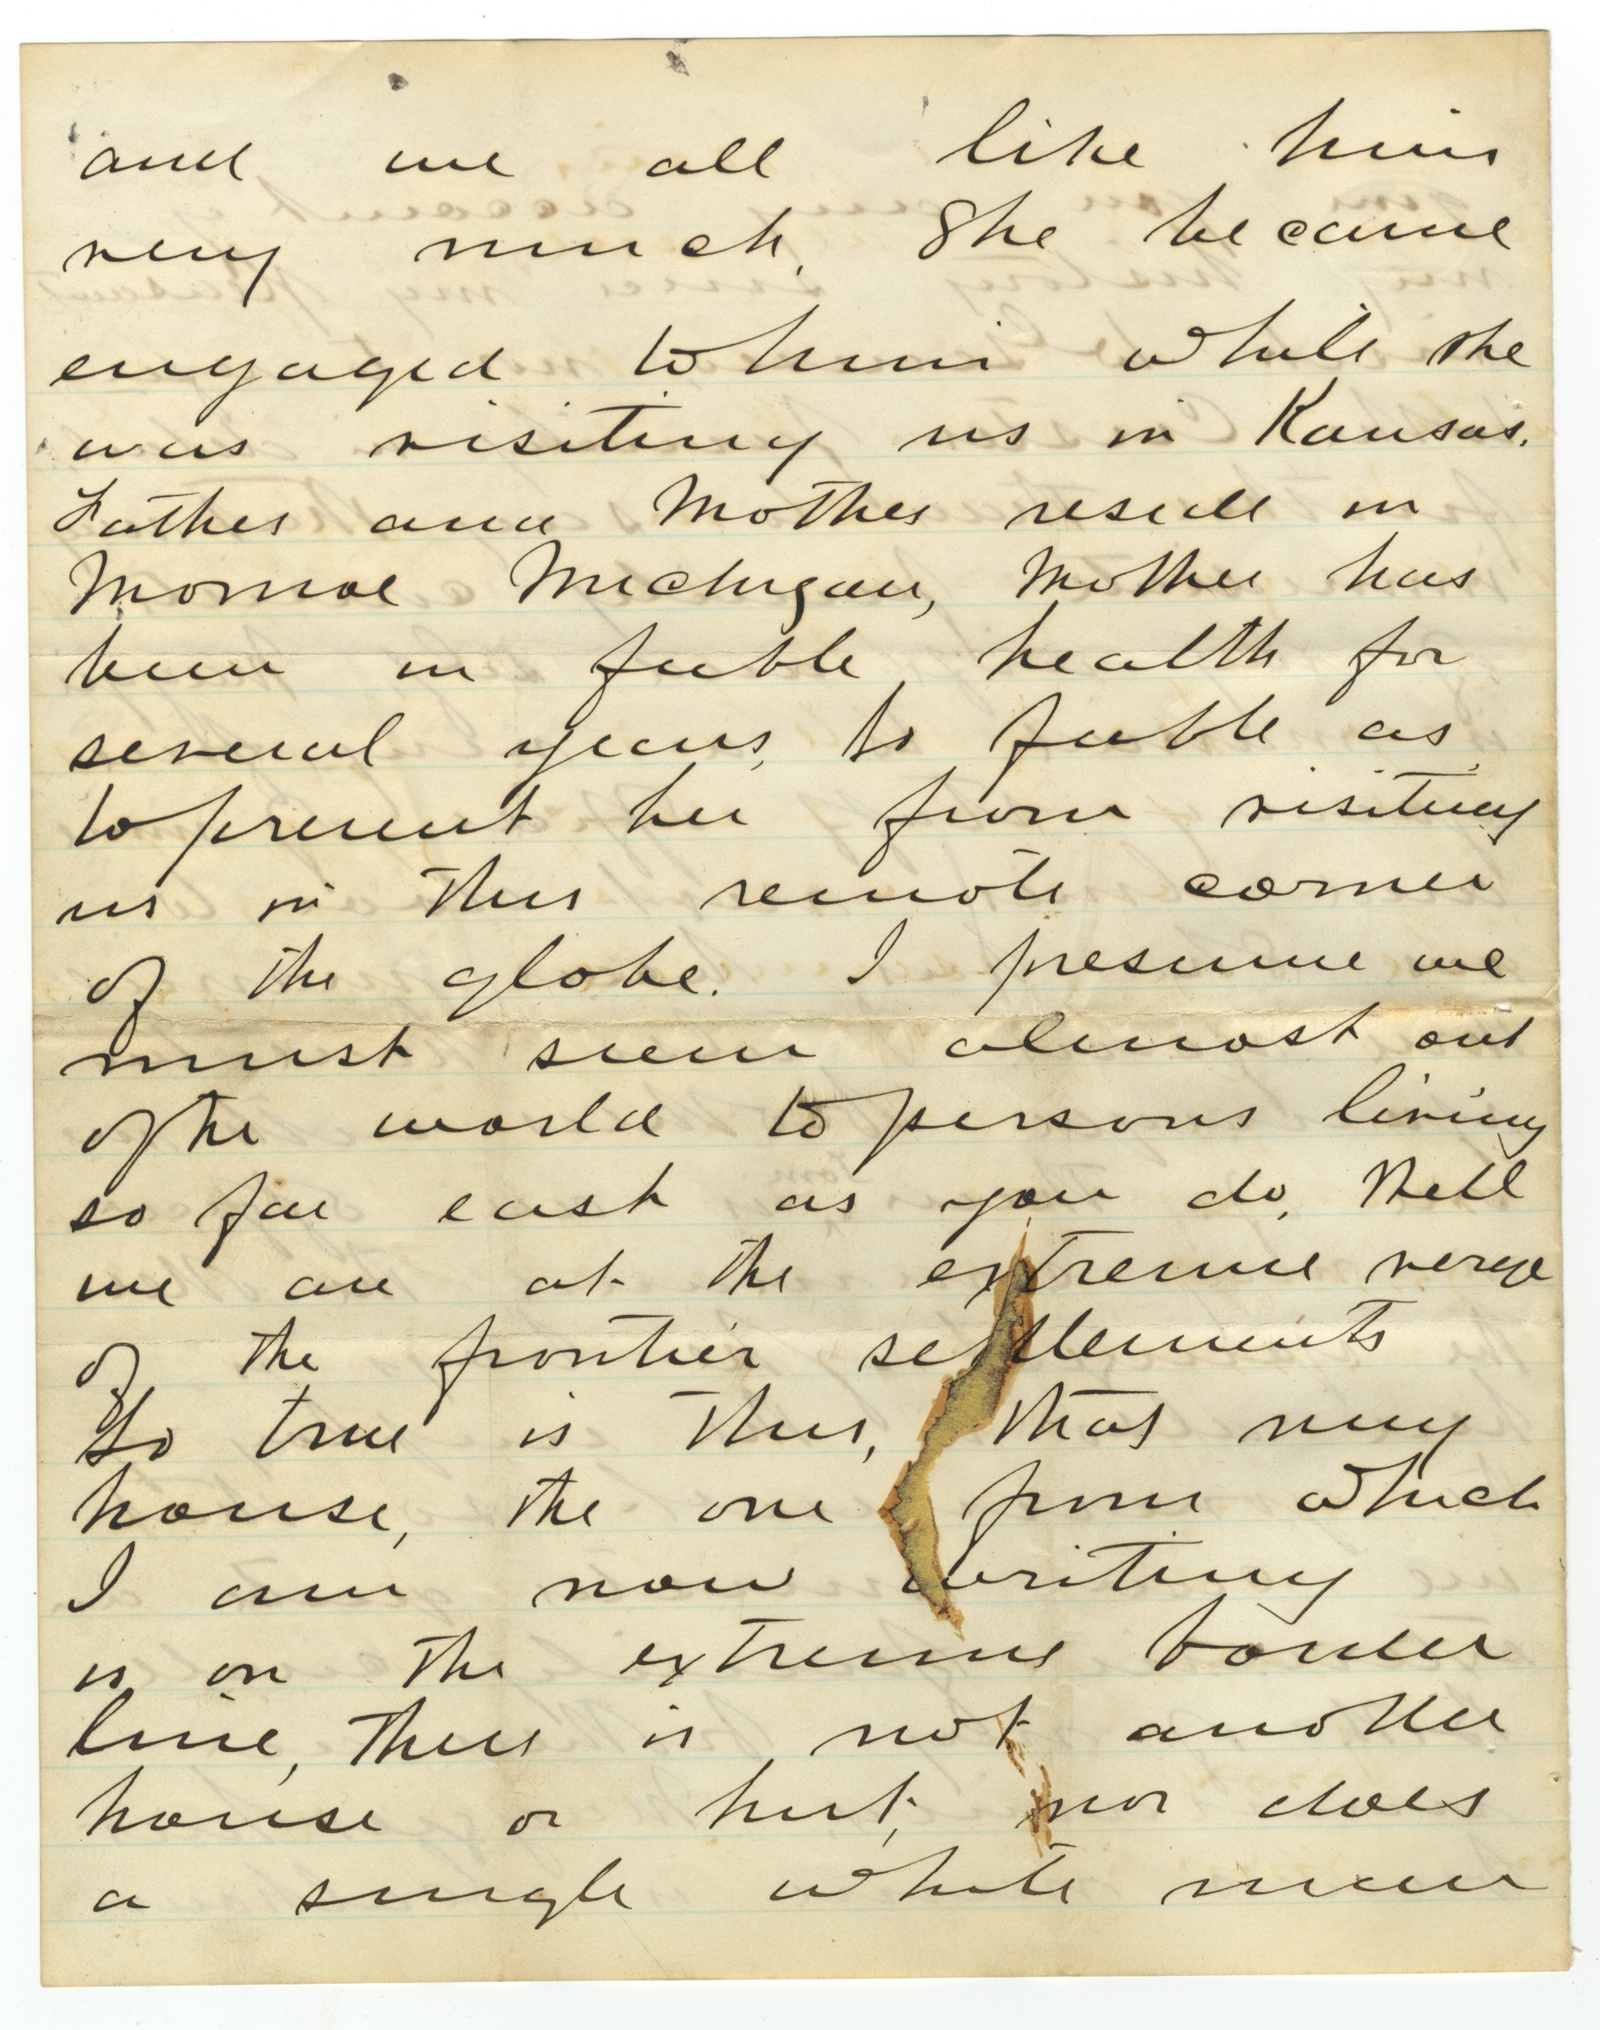 and we all like him
very much. She became
engaged to him while she
was visiting us in Kansas.
Father and Mother reside in
Monroe Michigan, Mother has
been in feeble health for
several years, so feeble as
to prevent her from visiting
us in this remote corner
of the globe. I presume we
must seem almost out
of the world to persons living
so far east as you do, Well
we are at the extreme verge
of the frontier settlements
So true is this, that my
house, the one from which
I am now writing
is on the extreme border
line, there is not another
house or hut, nor does
a single white man